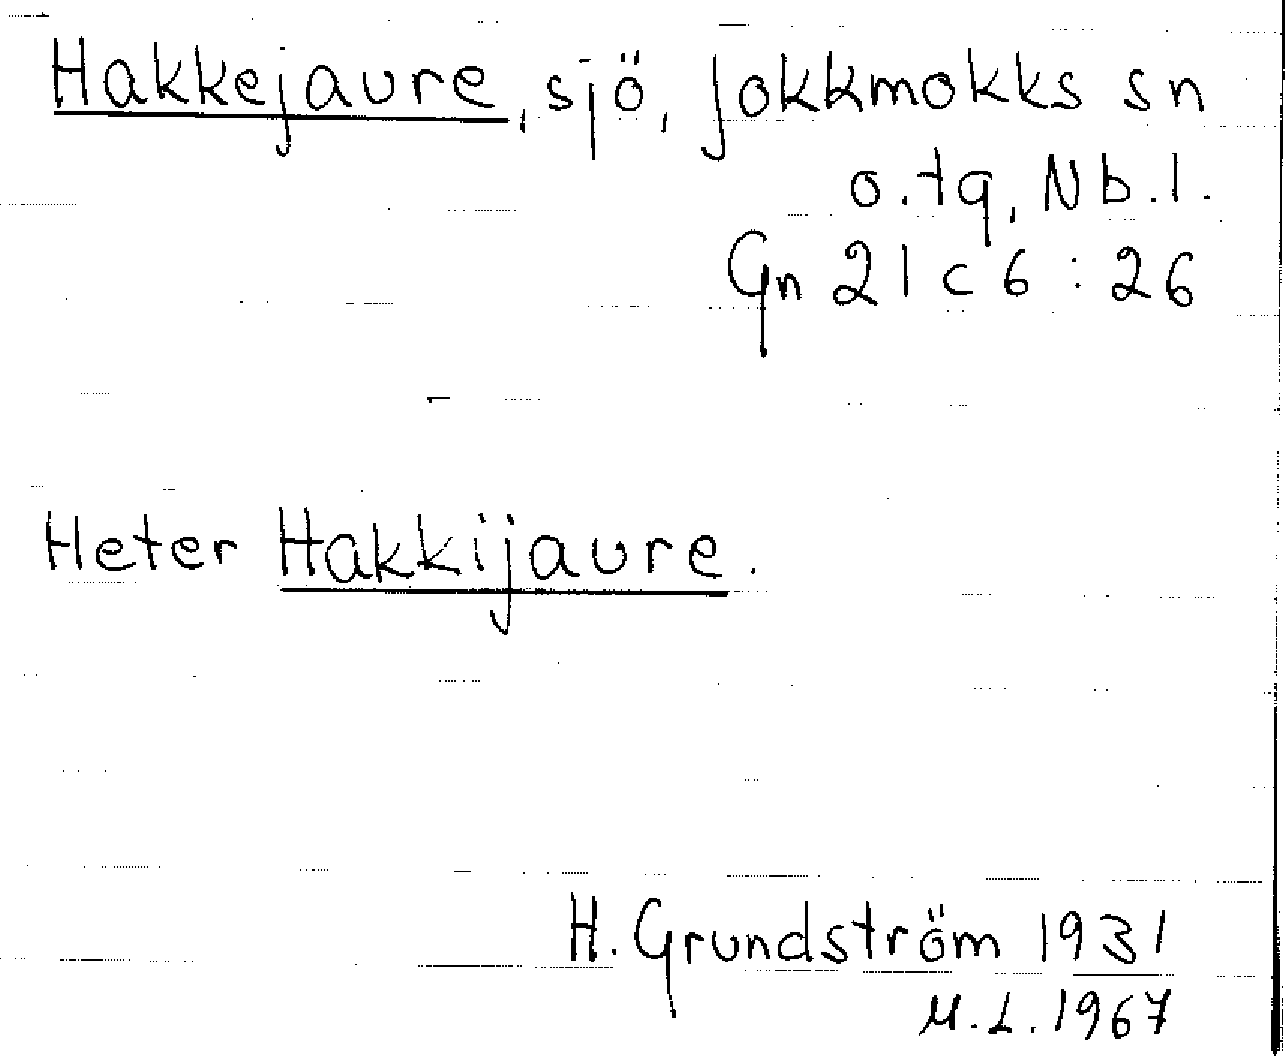 Hakkejaure, sjö, Jokkmokks sn
o. tg, Nb. l.
Gn 21 c 6 : 26
Heter Hakkijaure.
H. Grundström 1931
M. L. 1967